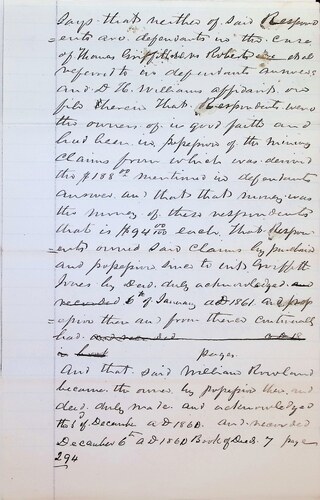 Says that neither of said Respond
ents are defendants in the case
of Thomas Griffith vs Roberts
referred to in defendants answer
and D. H. Williams affidavit on
file therein That Respondents were
the owners of in good faith and
had been in possession of the mining
Claims from which was derived
the $188 00 mentioned in defendants
answer and that that money was
the money of these respondents
that is $94 00/100 each. That Respon
ents owned said claims by purchase
and possession since to wit Griffith
Jones by Deed duly acknowledged and
recorded 6th of January AD 1861. and poss
ession then and from thence continually
had and recorded
in book page
And that said William Rowland
became the owner by possession then and
deed duly made and acknowledged
the 6th December AD 1860. and recorded
December 6th AD 1860 Book of Deeds 7 page
294